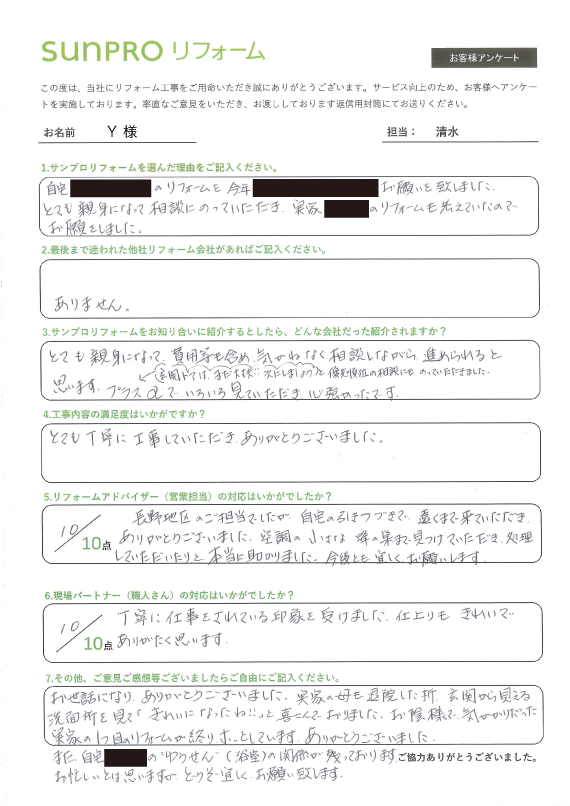 sunPRO リフォーム
お客様アンケート
この度は、当社にリフォーム工事をご用命いただき誠にありがとうございます。サービス向上のため、お客様へアンケー
トを実施しております。率直なご意見をいただき、お渡ししております返信用封筒にてお送りください。
お名前 Y 様 担当： 清水
1.サンプロリフォームを選んだ理由をご記入ください。
自宅 のリフォームを 今年 お願いを致しました。
とても親身になって相談にのっていただき、実家 のリフォームも考えていたので
お願をしました。
2.最後まで迷われた他社リフォーム会社があればご記入ください。
ありません。
3.サンプロリフォームをお知り合いに紹介するとしたら、どんな会社だった紹介されますか？
とても親身になって、費用等も含め、気がねなく相談しながら進められると
玄関ドアは、まだ大丈夫!! 次にしましょうと優先順位の相談にものっていただきました。
思います。プラスαで、いろいろ見ていただき心強かったです。
4.工事内容の満足度はいかがですか？
とても丁寧に工事していただき、ありがとうございました。
5.リフォームアドバイザー（営業担当）の対応はいかがでしたか？
長野地区のご担当でしたが、自宅のるすつづきで、遠くまで来ていただき、
10/10点 ありがとうございました。空調の小さな蜂の巣まで見つけていただき、処理
していただいたりと、本当に助かりました。今後とも宜しくお願いします。
6.現場パートナー（職人さん）の対応はいかがでしたか？
丁寧に仕事をされている印象を受けました。仕上りもきれいで
10/10点 ありがたく思います。
7.その他、ご意見ご感想等ございましたらご自由にご記入ください。
お世話になり、ありがとうございました。実家の母も退院した折、玄関から見える
洗面所を見て「きれいになったね!!」と喜こんでおりました。お陰様で、気がかりだった
実家の1つ目のリフォームが終りホッとしています。ありがとうございました。
また、自宅 の"ゆうせん"（浴室）の関係が残っております。ご協力ありがとうございました。
お忙しいとは思いますが、どうぞ宜しくお願い致します。